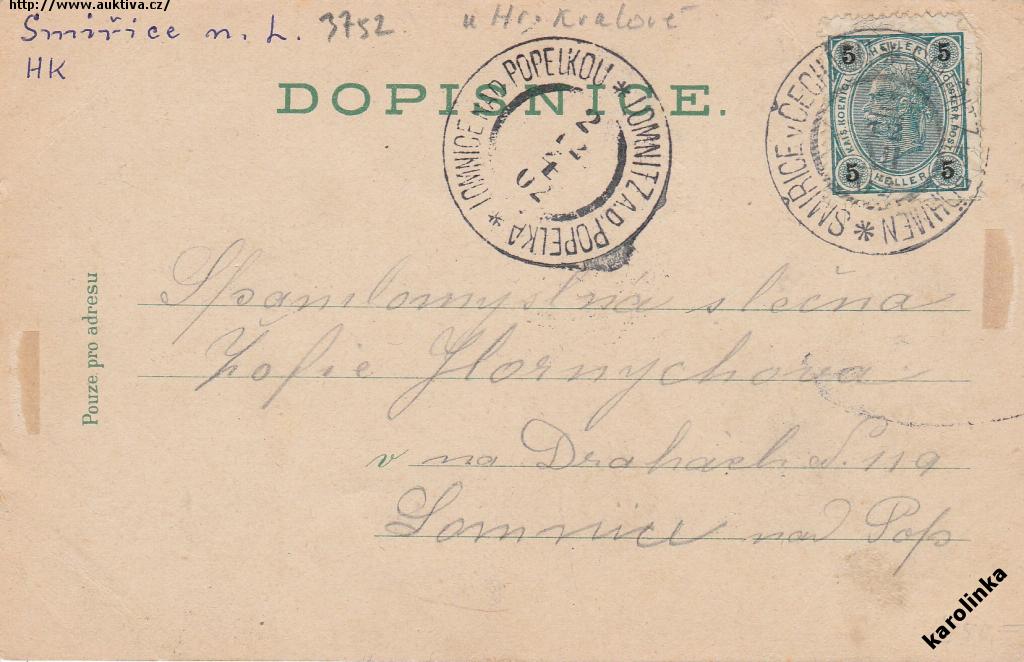 http://www.auktiva.cz/
Smiřice n. L. 3752 u Hr. Kralové
HK
DOPISNICE.
LOMNICE NAD POPELKOU * LOMNITZ A.D. POPELKA *
2
12
02
SMIŘICE v ČECH
*
5 HELLER 5
KAIS. KOENIGL. OESTERR. POST
5 HELLER 5
Pouze pro adresu
slečna
Žofie Hornychová
v na Drahách č. 119
Lomnice nad Pop
karolinka